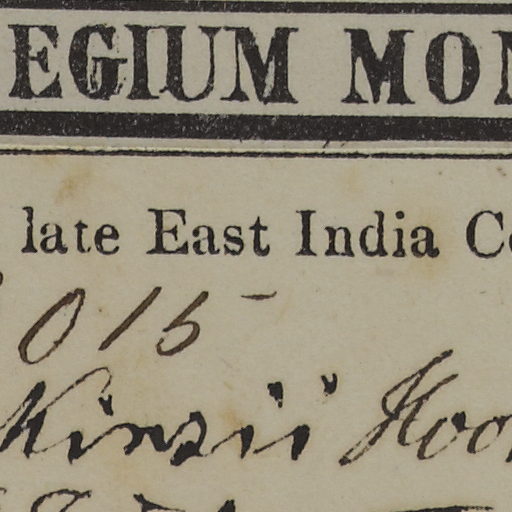 EGIUM MON
late East India Co
015
Kinzii Hoo